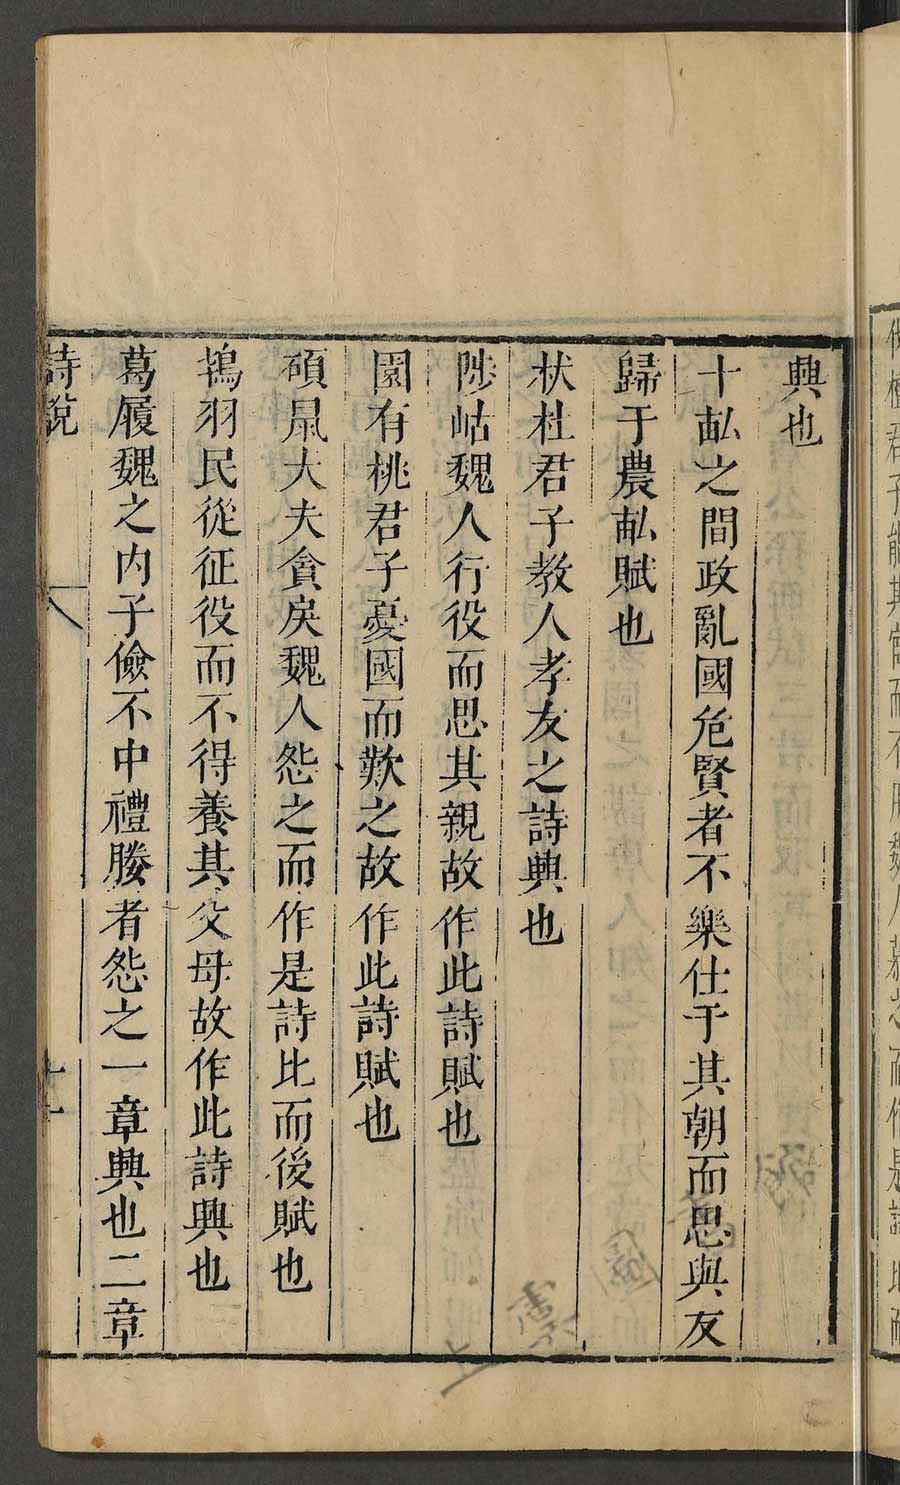 興也
十畝之間政亂國危賢者不樂仕于其朝而思與友
歸于農畝賦也
杕杜君子教人孝友之詩興也
陟岵魏人行役而思其親故作此詩賦也
園有桃君子憂國而歎之故作此詩賦也
碩鼠大夫貪戾魏人怨之而作是詩比而後賦也
鴇羽民從征役而不得養其父母故作此詩興也
葛屨魏之內子儉不中禮媵者怨之一章興也二章
詩說